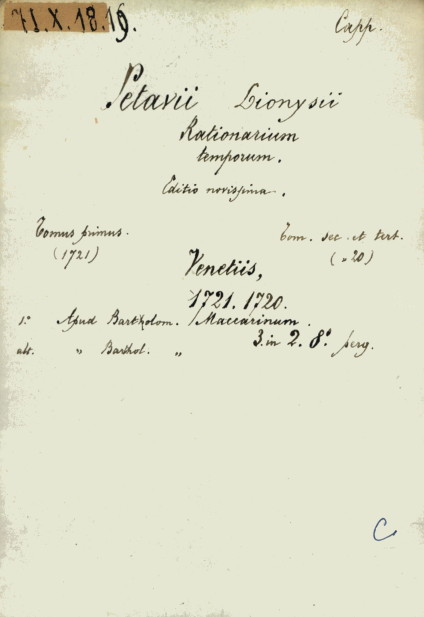 71.X.18.19. Capp.
Petavii Dionysii
Rationarium
temporum.
Editio novissima.
Tomus primus. Tom. sec. et tert.
(1721) („20)
Venetiis,
1721. 1720.
1.º Apud Bartholom. Maccarinum.
alt. „ Barthol. „ 3. in 2. 8.º perg.
C.